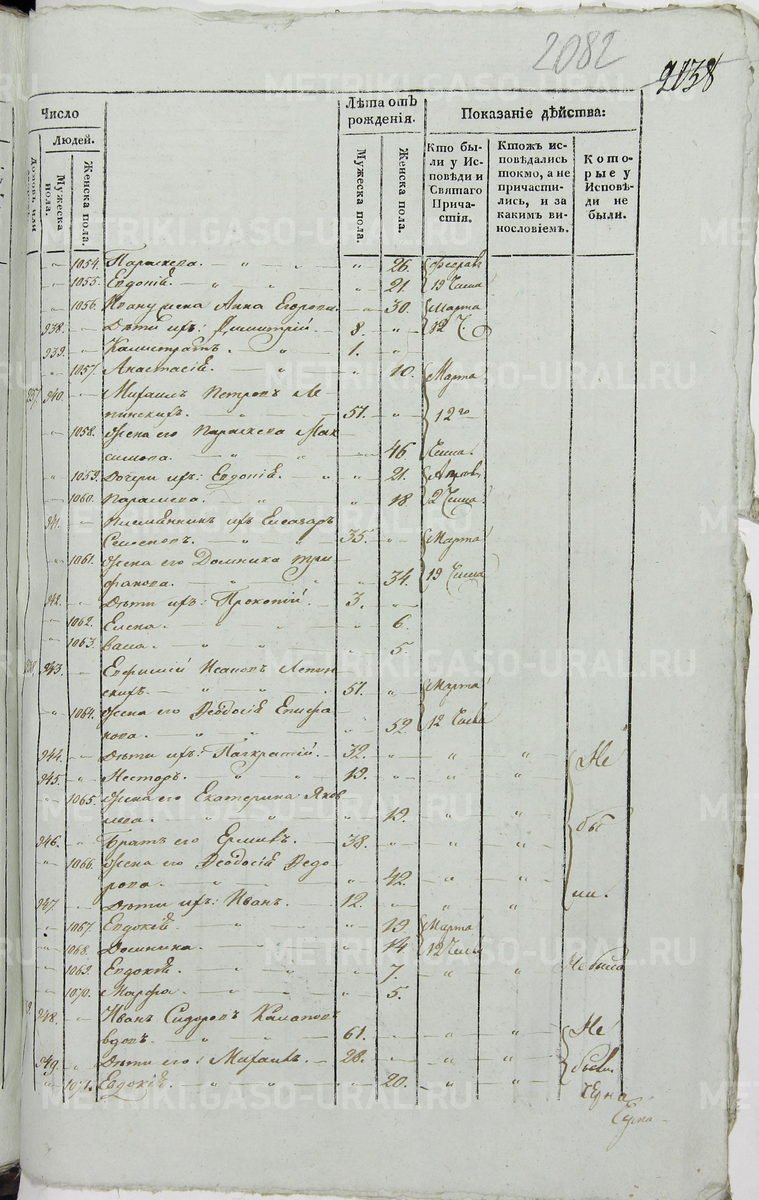 2082
2038
Число
Людей.
Домовъ или
Мужеска пола.
Женска пола.
Лѣта отъ рожденія.
Мужеска пола.
Женска пола.
Показаніе дѣйства:
Кто бы-
ли у Ис-
повѣди и
Святаго
Прича-
стія.
Ктожъ ис-
повѣдались
токмо, а не
причасти-
лись, и за
какимъ ви-
нословіемъ.
Кото-
рые у
Исповѣ-
ди не
были.
1054. Параскева. 26. Феврал
1055. Евдокія. 21. 19 Числа
1056. Анна Егорова. 30. Марта
938. Дѣти ихъ: Димитрій. 8. 12 Ч.
939. Калистратъ. 1.
1057. Анастасія. 10. Марта
940. Михаилъ Петровъ Ле-
пинскихъ. 51. 12го
1058. Жена его Параскева Мак-
симова. 46 Числа.
1059. Дочери ихъ: Евдокія. 21.
1060. Параскева. 18. 2 Числа
941. Племянникъ ихъ Елеазаръ
Семеновъ. 35. Марта
1061. Жена его Домника Три-
фанова. 34. 19 Числа
942. Дѣти ихъ: Прокопій. 3.
1062. Елена. 6.
1063. 5.
943. Ефимій Ивановъ Лепин-
скихъ. 51. Марта
1064. Жена его Ѳеодосія Епифа-
нова. 52. 12 Числа
944. Дѣти ихъ: Панкратій. 32. Не
945. Несторъ. 19.
1065. Жена его Екатерина Яков-
лева. 19. бы
946. Братъ его Ермилъ. 38.
1066. Жена его Ѳеодосія Ѳедо-
рова. 42. ли.
947. Дѣти ихъ: Иванъ. 12.
1067. Евдокія. 19. Марта
1068. Домника. 14. 12 Числа
1069. Евдокія. 7. Не была
1070. Марфа. 5.
948. Иванъ Сидоровъ
61. Не
949. Дѣти его: Михаилъ. 28. были
1071. Евдокія. 20.
METRIKI.GASO-URAL.RU